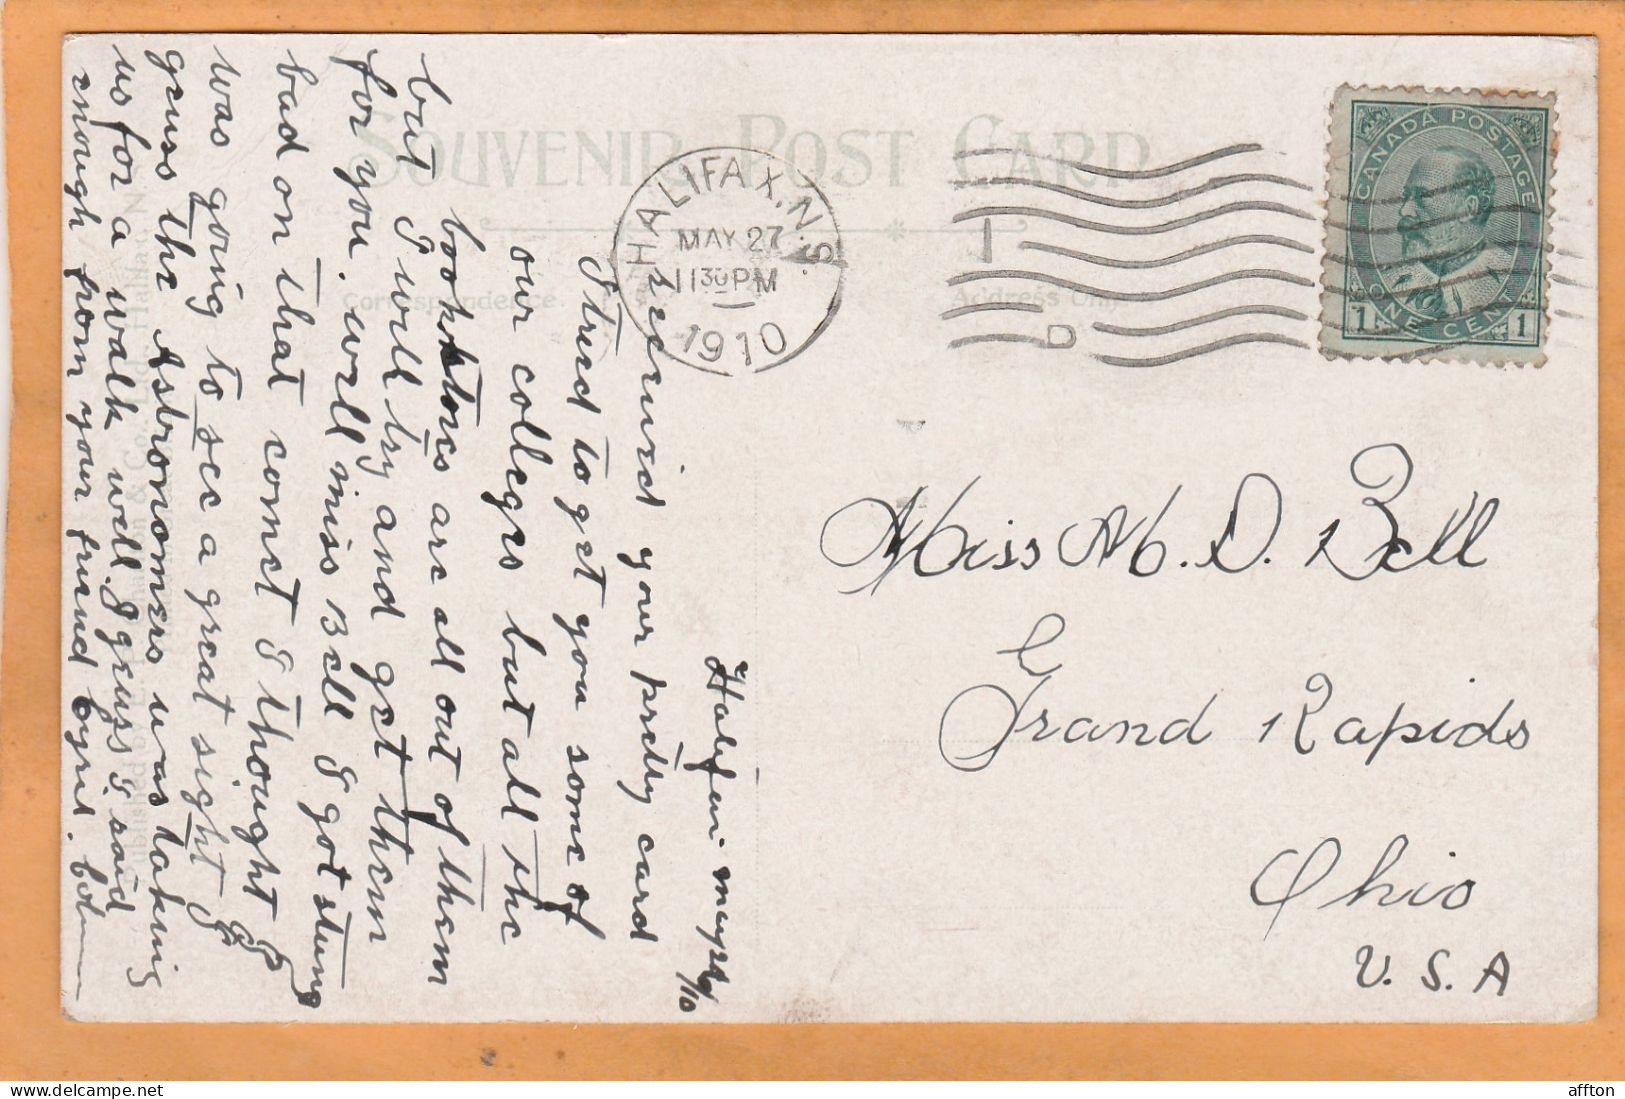 SOUVENIR POST CARD
HALIFAX, N.S.
MAY 27
1130PM
1910
D
CANADA POSTAGE
ONE CENT
1 1
Correspondence.
Address Only
Halifax may 26/10
recevied your pretty card
I tried to get you some of
our colleges but all the
bookstores are all out of them
but I will try and get them
for you. well miss Bell I got stung
bad on that comet I thought I
was going to see a great sight I
guess the Astronomers was taking
us for a walk well I guess I said
enough from your friend
Miss M. D. Bell
Grand Rapids
Ohio
U.S.A
affton